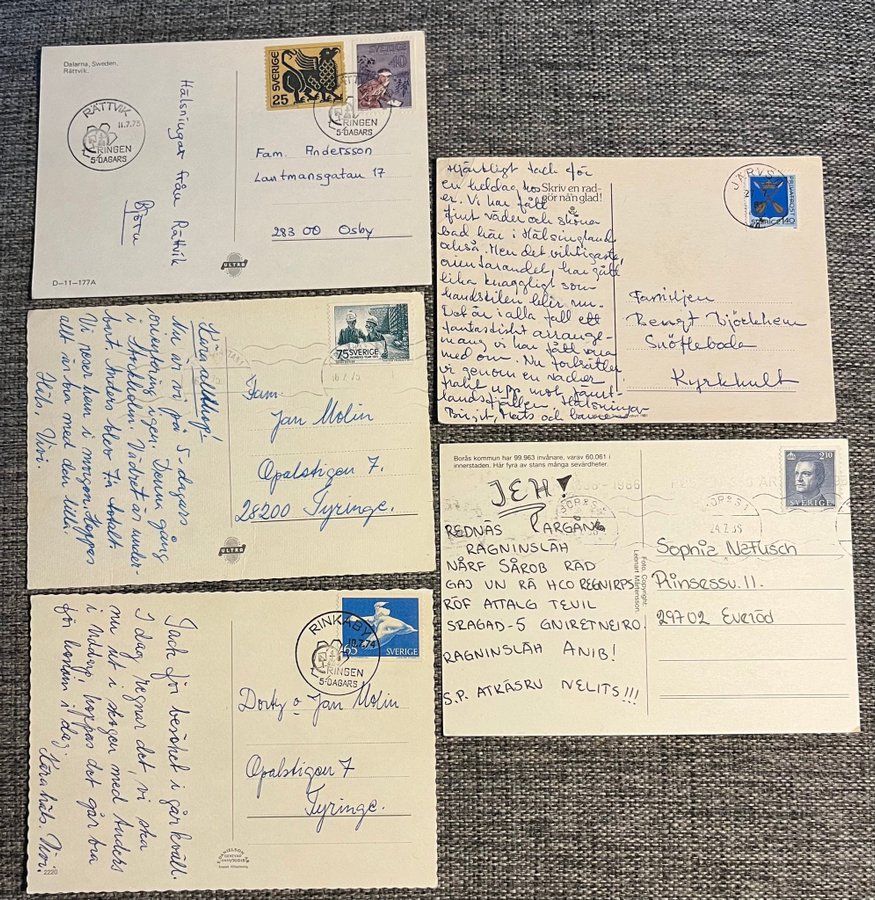 Dalarna, Sweden.
Rättvik.
Hälsningar från Rättvik
Björn
D-11-177A
ULTRA
RÄTTVIK
11.7.75
O-RINGEN
5-DAGARS
SVERIGE
25
SVERIGE
40
RÄTTVIK
O-RINGEN
5-DAGARS
Fam. Andersson
Lantmansgatan 17
283 00 Osby
Kära allihop!
Nu är vi på 5-dagars
orientering igen. Denna gång
i Vädret är under-
bart. Anders blev 7:a totalt.
Vi reser hem i morgon. Hoppas
allt är bra med den lilla.
Häls. Vivi.
ULTRA
75 SVERIGE
16.7.75
Fam.
Jan Molin
Opalstigen 7.
28200 Tyringe.
Tack för besöket i går kväll.
I dag regnar det, vi ska
nu ut i skogen med Anders
i hoppas det går bra
för honom i dag.
Häls. Vivi.
2220
RINKABY
18.7.74
O-RINGEN
5-DAGARS
65
SVERIGE
Dorty o Jan Molin
Opalstigen 7
Tyringe.
Hjärtligt tack för
en heldag hos
er. Vi har fått
fint väder och sköna
bad här i Hälsingland
också. Men det viktigaste,
orienterandet, har gått
lika knaggligt som
handstilen blir nu.
Det är i alla fall ett
fantastiskt arrange-
mang vi har fått vara
med om. Nu fortsätter
vi genom en vacker
trakt upp mot Jämt-
landsfjällen. Hälsningar
Birgit, Mats och barnen
Skriv en rad-
gör nån glad!
JÄRVSÖ
PRIVATPOST
SVERIGE 140
Familjen
Bengt Björkhem
Snöfleboda
Kyrkhult
Borås kommun har 99.963 invånare, varav 60.061 i
innerstaden. Här fyra av stans många sevärdheter.
JEH!
REDNÄS ARGÅN
RAGNINSLÄH
NÅRF SÅROB RÄD
GAJ UN RÄ HCO REGNIRPS
RÖF ATTALG TEVIL
SRAGAD-5 GNIRETNEIRO!
RAGNINSLÄH ANIB!
S.P. ATKÄSRU NELITS!!!
Foto, Copyright:
Lennart Mårtensson.
BORÅS 1
24.7.85
2.10
SVERIGE
Sophia Nefusch
Prinsessv. 11.
297 02 Everöd